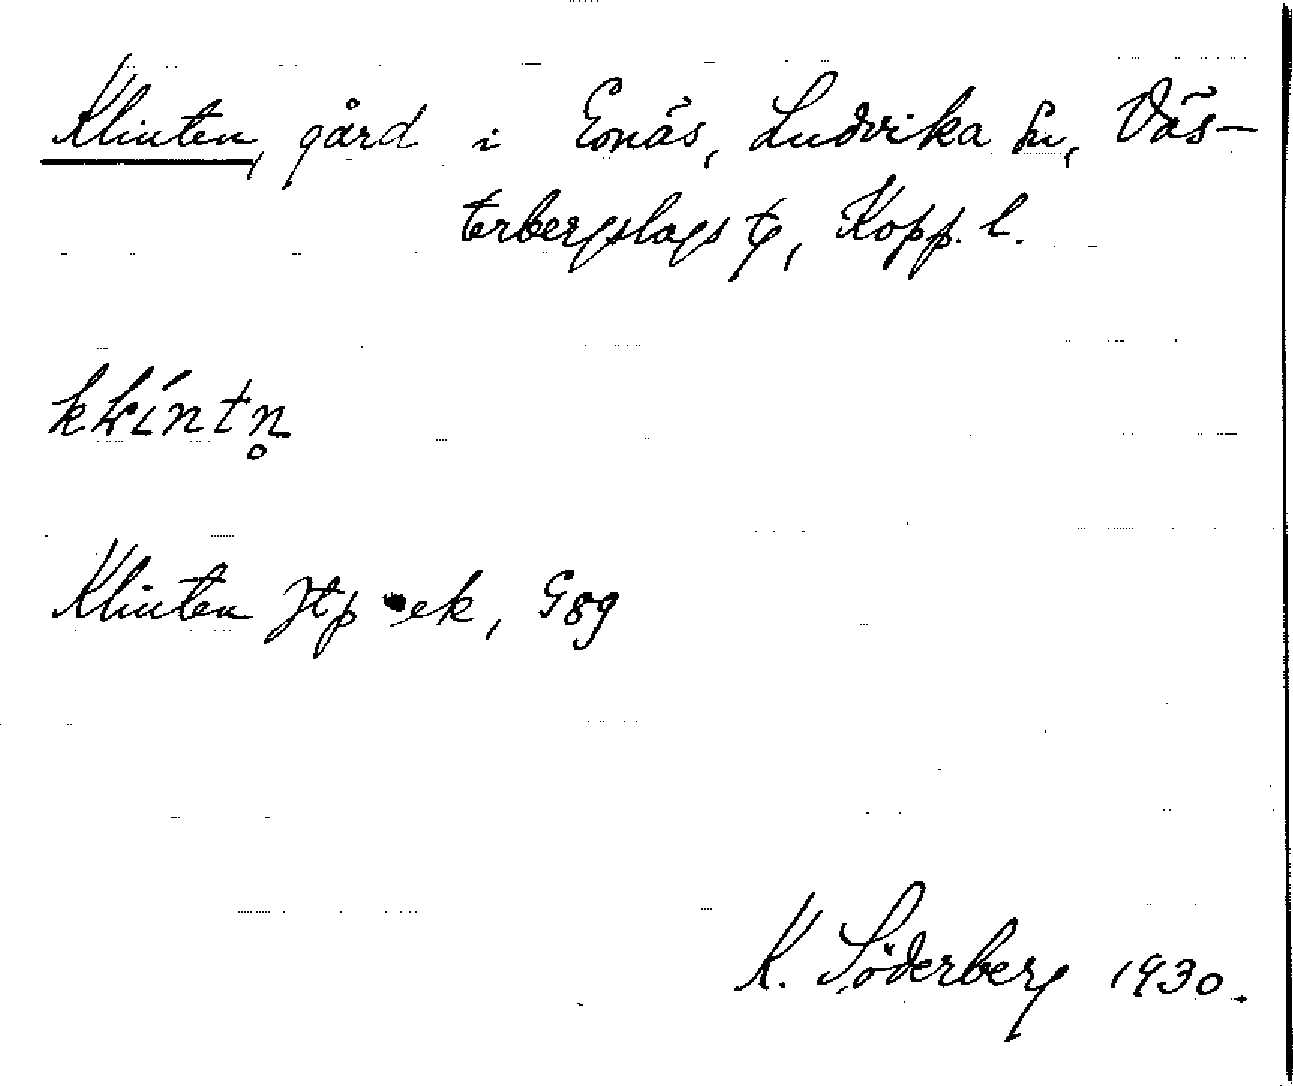 Klinten, gård i Enäs, Ludvika sn, Väs-
terbergslags tg, Kopp. l.
kłíntn̥
Klinten Jtp ek, G89
K. Söderberg 1930.